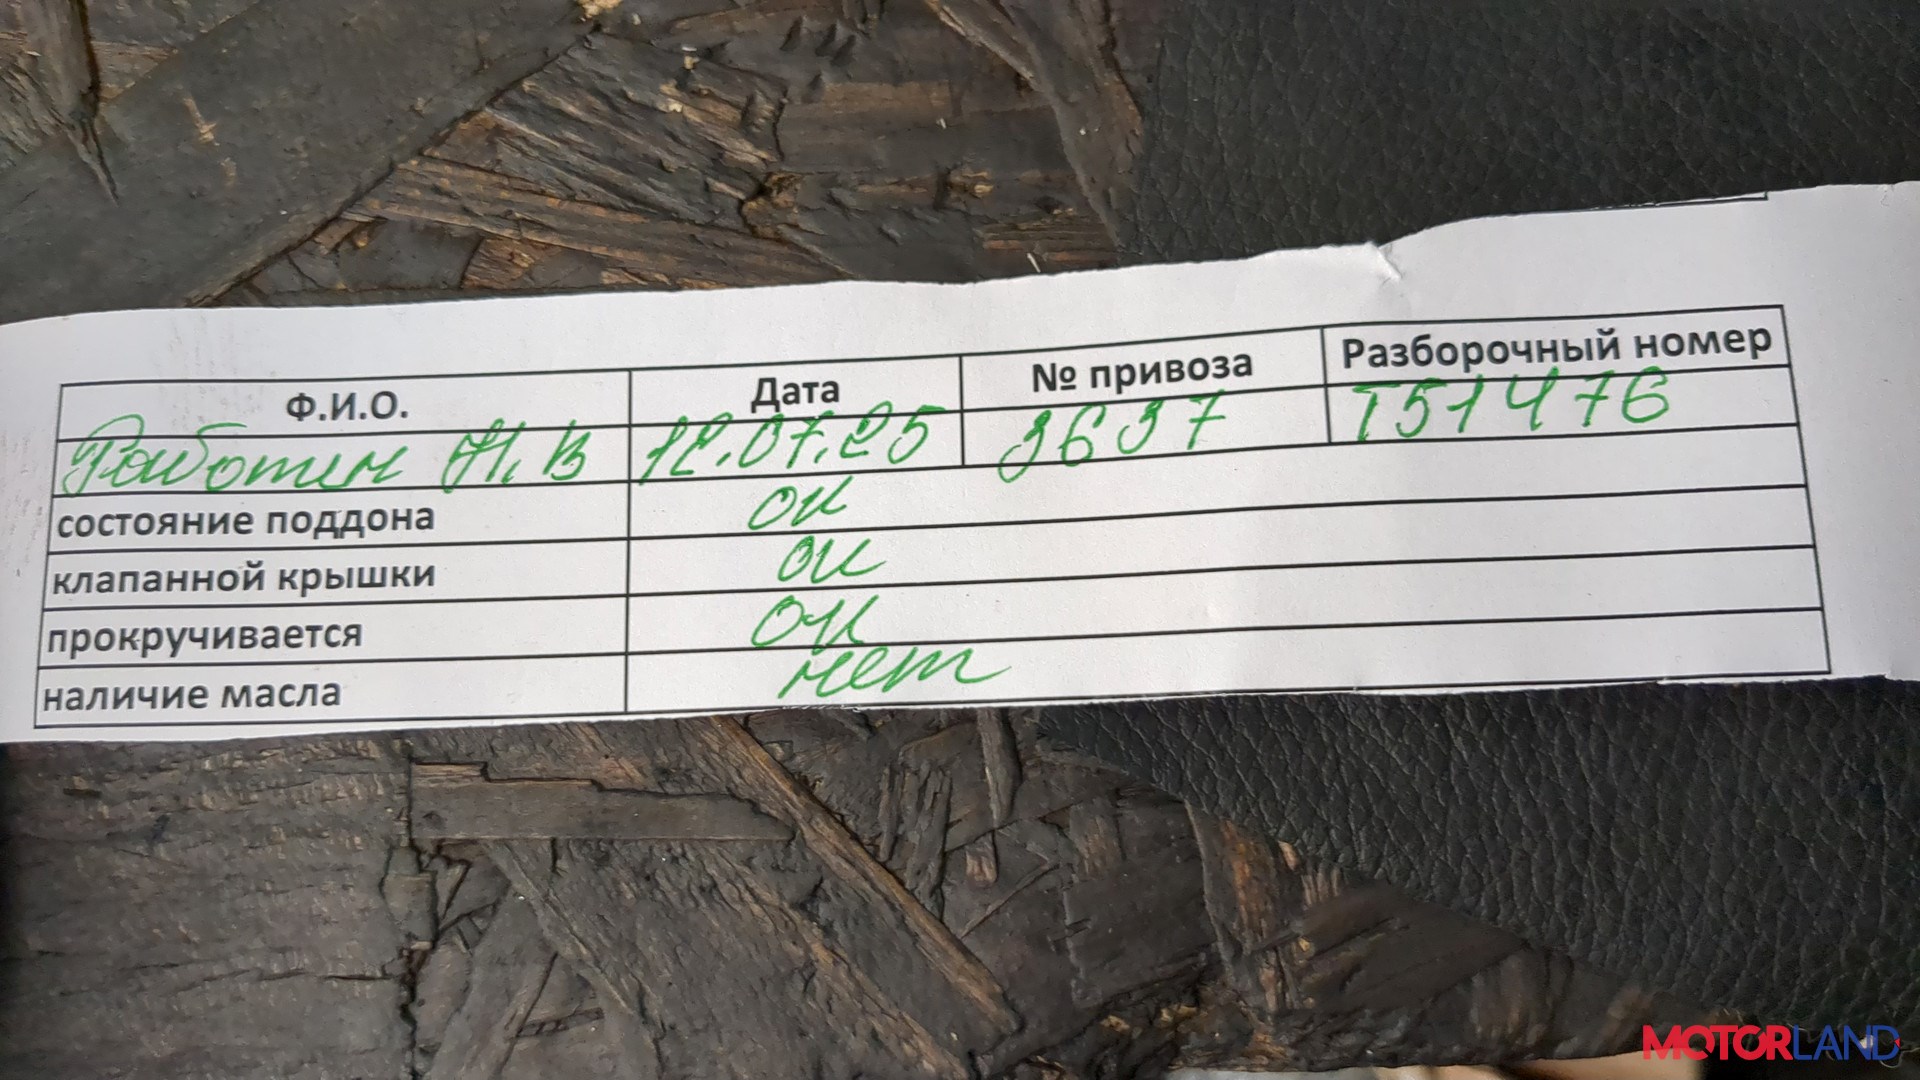 Ф.И.О. Дата № привоза Разборочный номер
Работин Н.В 12.07.25 3637 T51476
состояние поддона ок
клапанной крышки ок
прокручивается ок
наличие масла нет
MOTORLAND